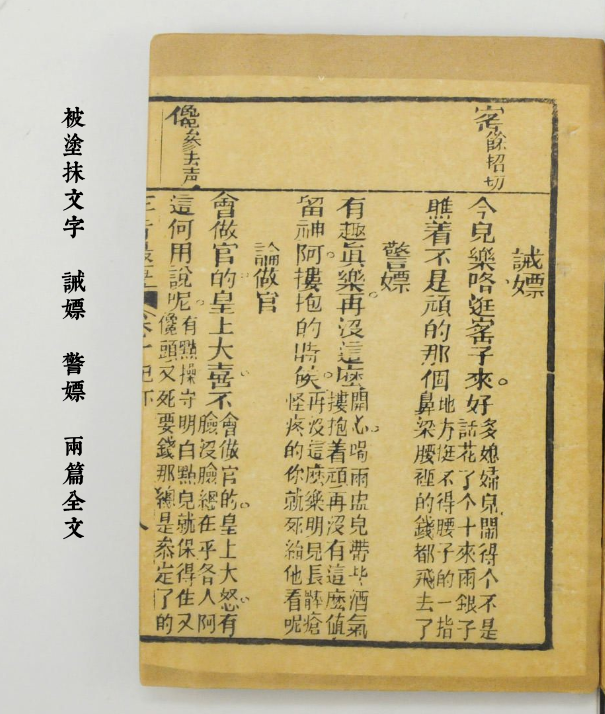 窰餘招切
儳參去声
誡嫖
今兒樂咯逛窰子來好
多媳婦兒閙得个不是
話花了个十來兩銀子
瞧着不是頑的那個
地方逛不得腰子的一
鼻梁腰裡的錢都飛去了
警嫖
有趣眞樂再沒這麽
開心喝兩盅兒帶些酒氣
摟抱着頑再沒有這麽值
留神阿摟抱的時候
再沒這麽樂明兒長髒瘡
怪疼的你就死給他看呢
論做官
會做官的皇上大喜不
會做官的皇上大怒有
臉沒臉總在乎各人阿
這何用說呢
有點操守明白點兒就保得住又
儳頭又死要錢那總是叅定了的
被塗抹文字 誡嫖 警嫖 兩篇全文